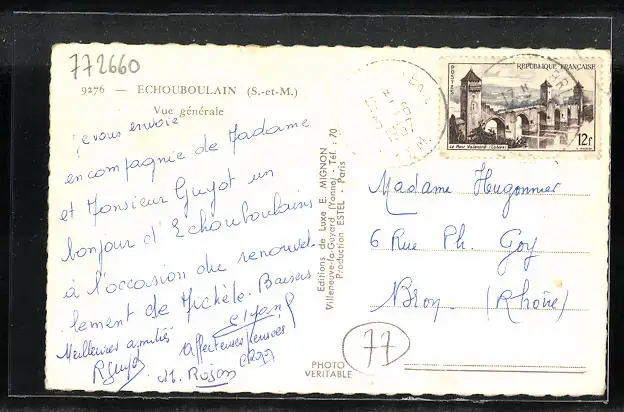 772660
9276 — ECHOUBOULAIN (S.-et-M.)
Vue générale
Je vous envoie
en compagnie de Madame
et Monsieur Guyot un
bonjour d'Echouboulains
à l'occasion du renouvel
lement de Michèle. Baisers
Meilleures amitiés
Affectueuses pensées
RGuyot
M. Rojon
Editions de Luxe E. MIGNON
Villeneuve-la-Guyard (Yonne) - Tél. : 70
Production ESTEL - Paris
PHOTO
VERITABLE
POSTES
REPUBLIQUE FRANÇAISE
Le Pont Valentré (Cahors)
12f
Madame Hugonnier
6 Rue Ph. Goy
Bron (Rhône)
77